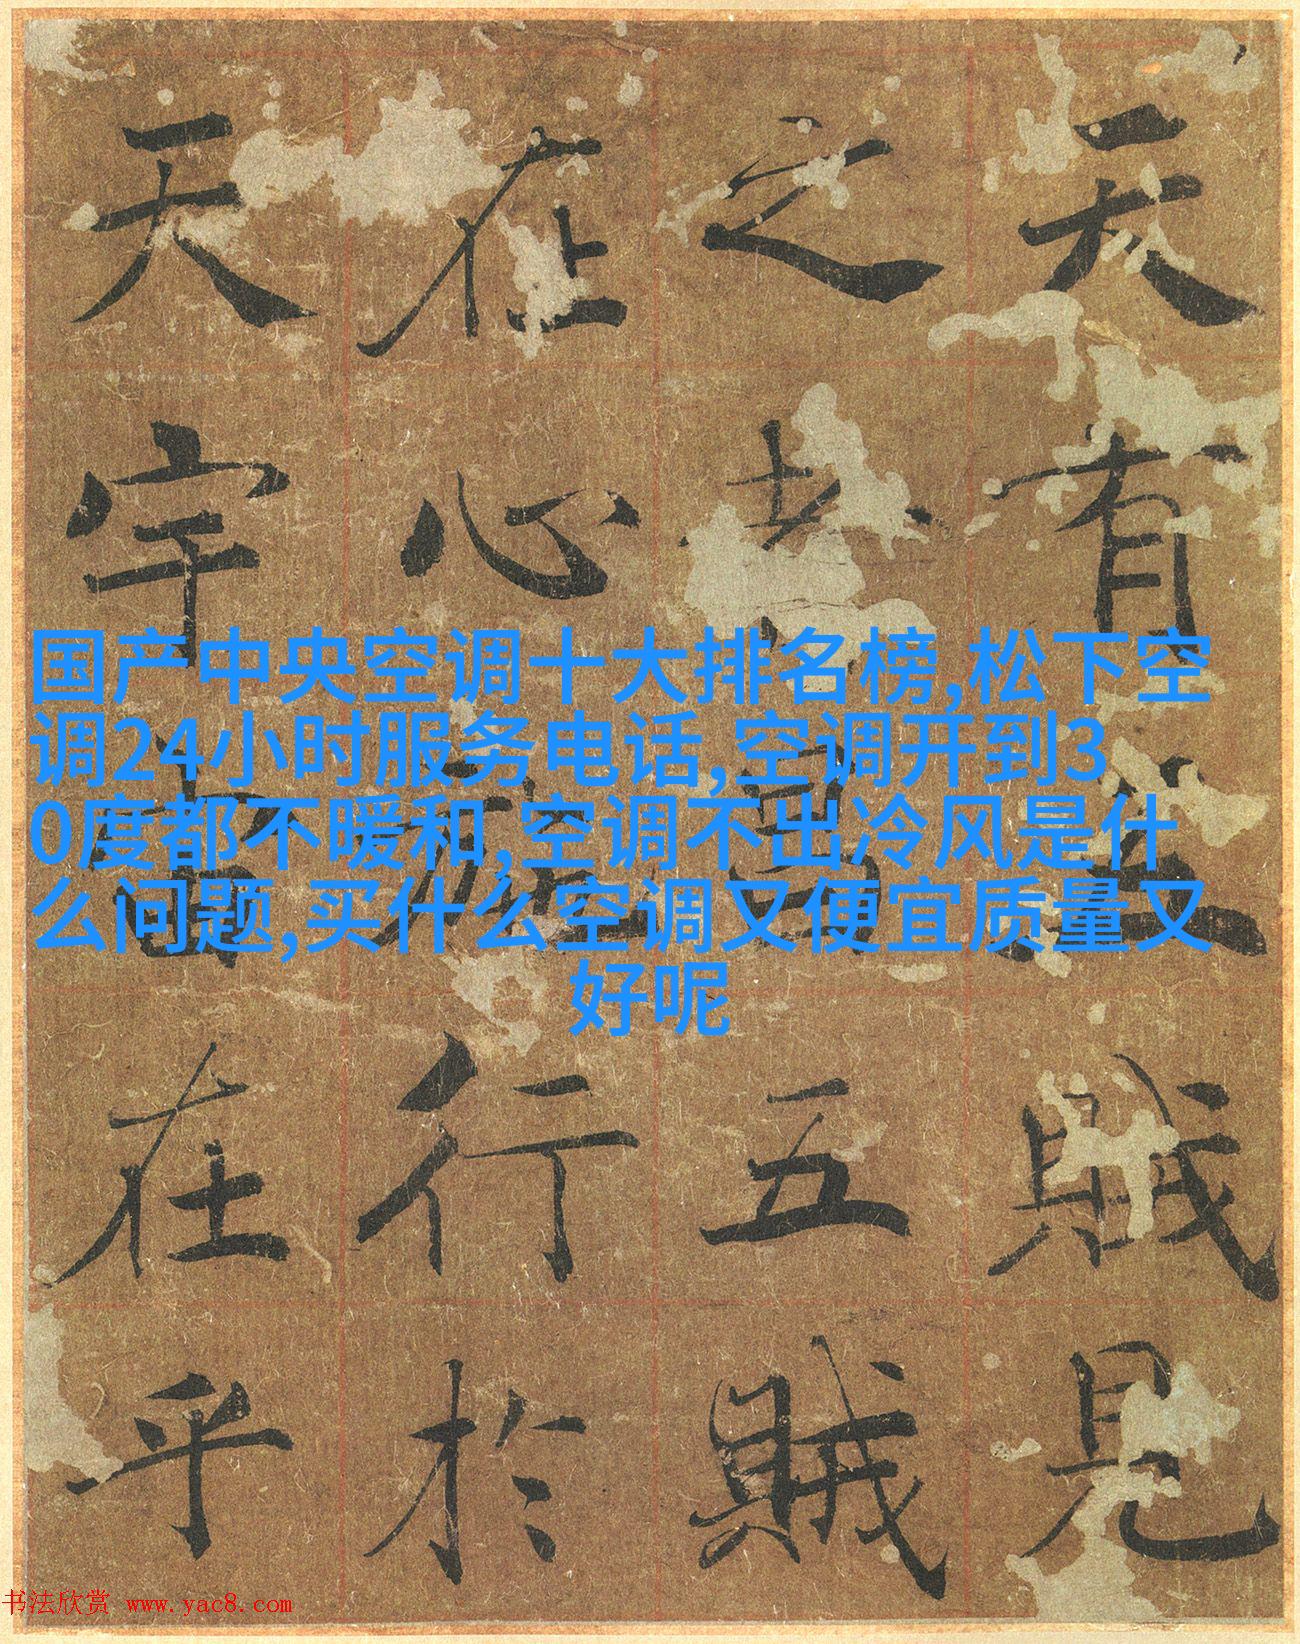 天有五賊見
之者昌五賊
在心施行於
天宇宙在乎
国产中央空调十大排名榜,松下空
调24小时服务电话,空调开到3
0度都不暖和,空调不出冷风是什
么问题,买什么空调又便宜质量又
好呢
书法欣赏 www.yac8.com